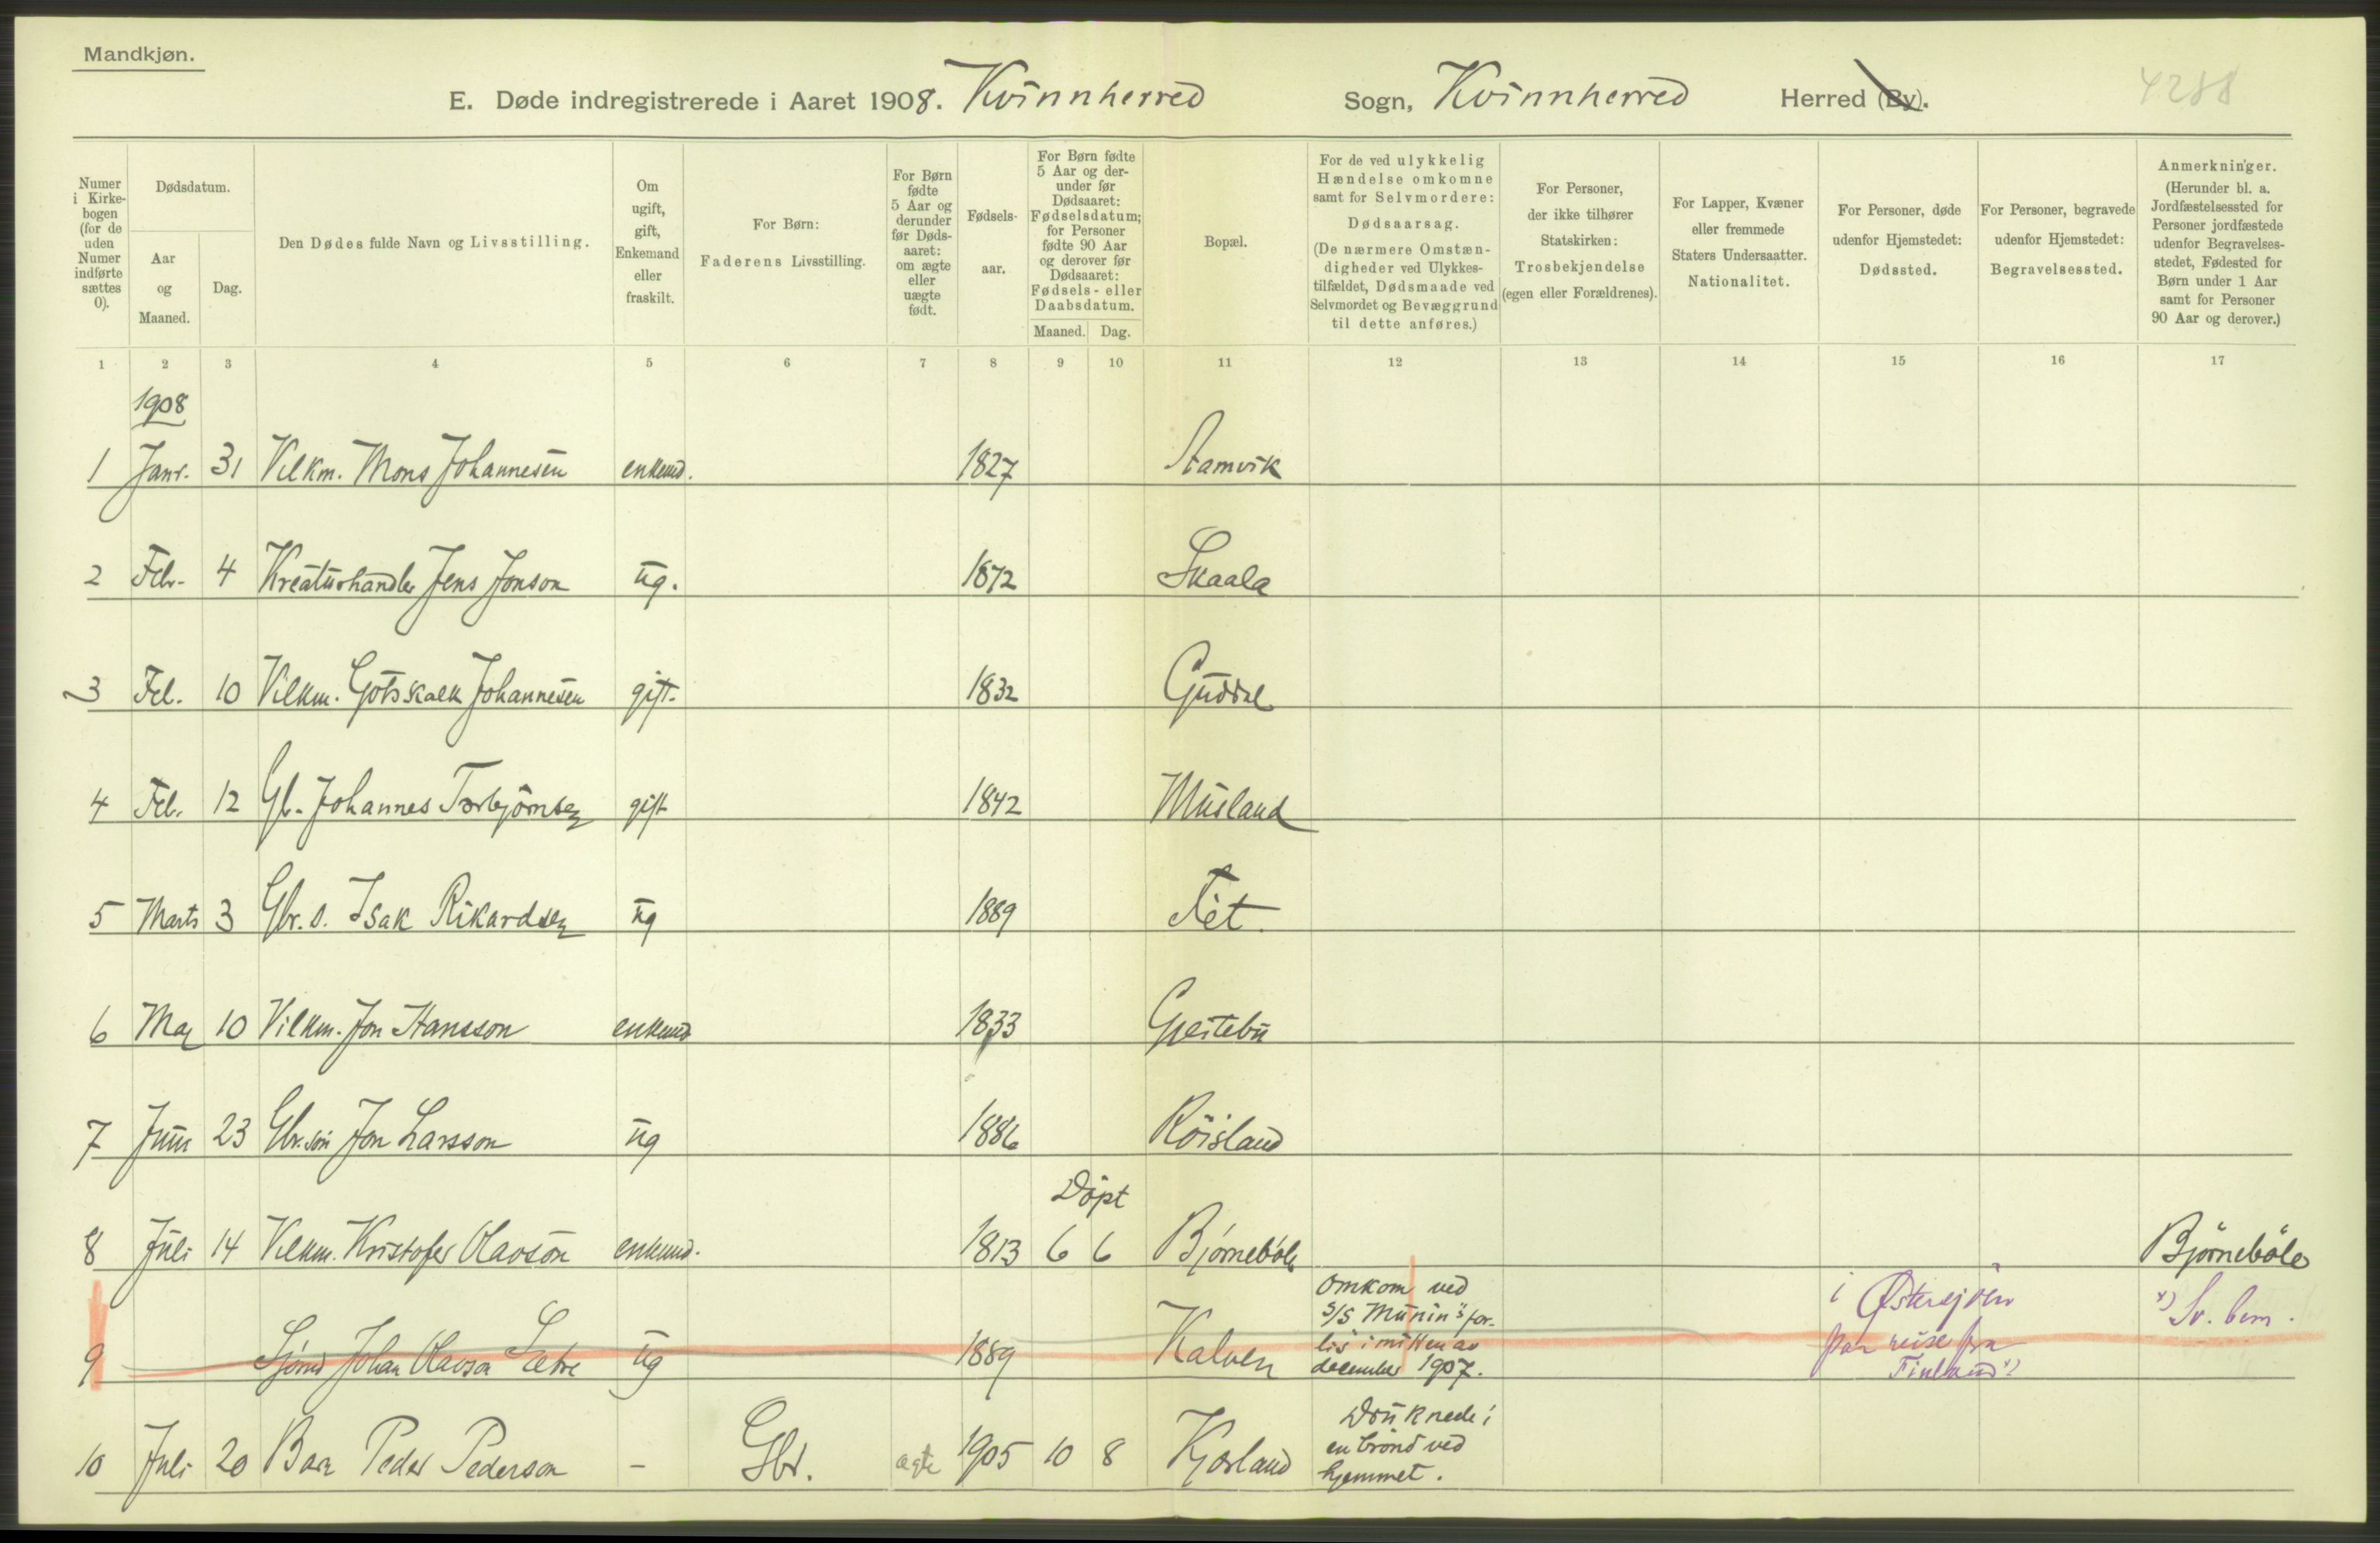 Mandkjøn.
E. Døde indregistrerede i Aaret 1908. Kvinnherred Sogn, Kvinnherred Herred (By).
4288
Numer i Kirkebogen (for de uden Numer indførte sættes 0).
Dødsdatum.
Aar og Maaned.
Dag.
Den Dødes fulde Navn og Livsstilling.
Om ugift, gift, Enkemand eller fraskilt.
For Børn: Faderens Livsstilling.
For Børn fødte 5 Aar og derunder før Dødsaaret: om ægte eller uægte født.
Fødselsaar.
For Børn fødte 5 Aar og derunder før Dødsaaret: Fødselsdatum; for Personer fødte 90 Aar og derover før Dødsaaret: Fødsels- eller Daabsdatum.
Maaned. Dag.
Bopæl.
For de ved ulykkelig Hændelse omkomne samt for Selvmordere: Dødsaarsag. (De nærmere Omstændigheder ved Ulykkestilfældet, Dødsmaade ved Selvmordet og Bevæggrund til dette anføres.)
For Personer, der ikke tilhører Statskirken: Trosbekjendelse (egen eller Forældrenes).
For Lapper, Kvæner eller fremmede Staters Undersaatter. Nationalitet.
For Personer, døde udenfor Hjemstedet: Dødssted.
For Personer, begravede udenfor Hjemstedet: Begravelsessted.
Anmerkninger. (Herunder bl. a. Jordfæstelsessted for Personer jordfæstede udenfor Begravelsesstedet, Fødested for Børn under 1 Aar samt for Personer 90 Aar og derover.)
1 2 3 4 5 6 7 8 9 10 11 12 13 14 15 16 17
1908
1 Janr. 31 Vilkm. Mons Johannesen enkemd. 1827
2 Febr. 4 Kreaturhandler Jens Jonson ug. 1872 Skaala
3 Feb. 10 Vilkm. Gotskalk Johannesen gift. 1832 Guddal
4 Feb. 12 Gb. Johannes Torbjørnsen gift 1842 Musland
5 Marts 3 Gbr. s. Isak Rikardsen ug 1889 Tet.
6 Maj 10 Vilkm. Jon Hansson enkemd 1833 Gjestebu
7 Juni 23 Gbr. søn Jon Larsson ug 1886 Røisland
Døpt
8 Juli 14 Vilkm. Kristofer Olavson enkemd. 1813 6 6 Bjørnebøle Bjørnebøle
9 Sjømd Johan Olavson Sætre ug 1889 Kalven
Omkom ved
S/S "Munin"s for-
lis i midten av
december 1907.
i Østersjøen
paa reise fra
Finland x)
x) Sv. bem.
10 Juli 20 Barn Peder Pederson - Gbr. ægte 1905 10 8 Kjærland
Druknede i
en brønd ved
hjemmet.